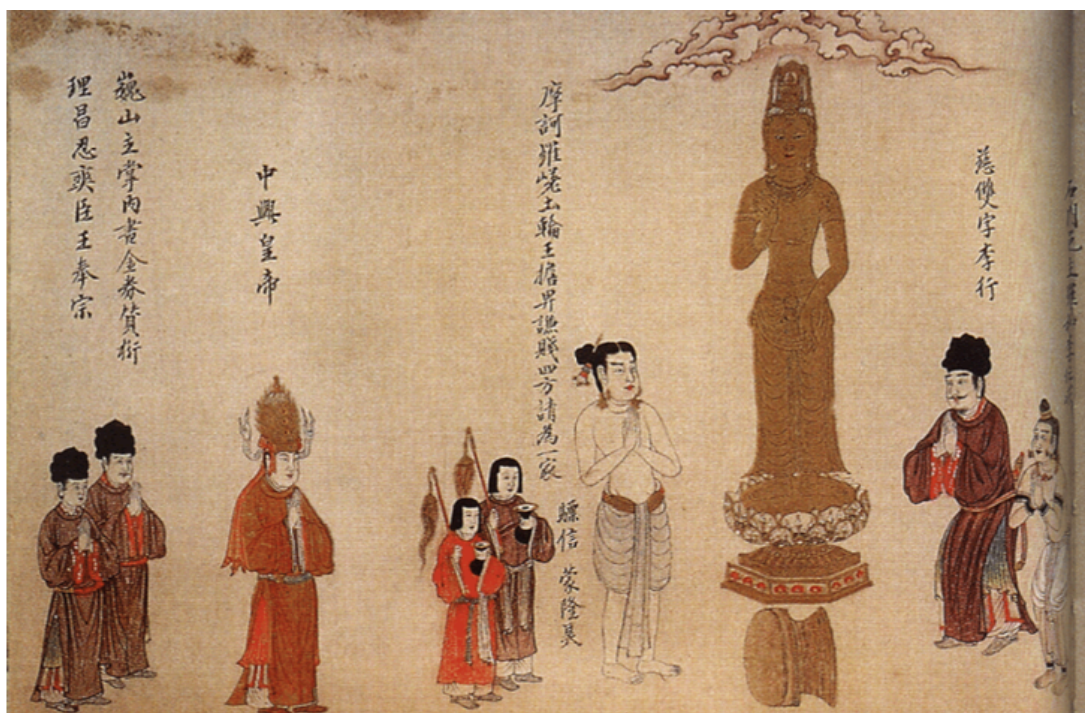 石門邑主羅
慈雙字李行
摩訶羅嵯土輪王擔畀謙賤四方請為一家
驃信 蒙隆昊
中興皇帝
巍山主掌內書金券贊衛
理昌忍爽臣王奉宗